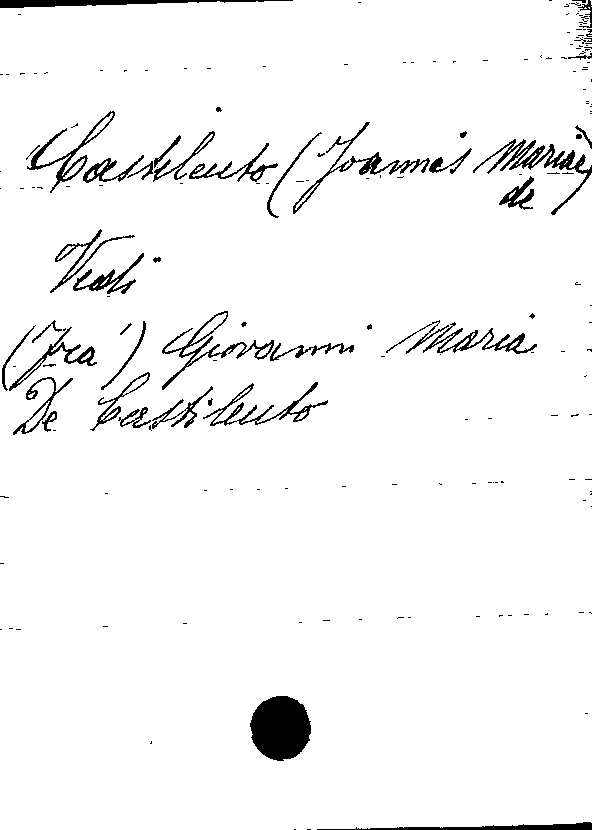 Castilento (Joannes Mariae
de)
Vedi
(Fra') Giovanni Maria
De Castilento